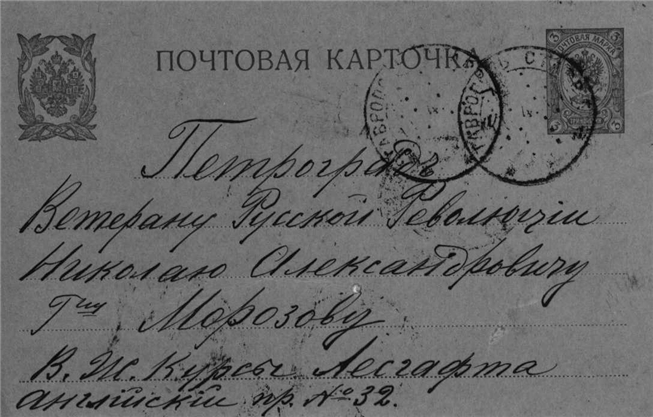 ПОЧТОВАЯ КАРТОЧКА
ПОЧТОВАЯ МАРКА
3 3
Петроградъ
Ветерану Русской Революціи
Николаю Александровичу
Гну Морозову.
В. Ж. Курсы Лесгафта
Англійскій пр. № 32.